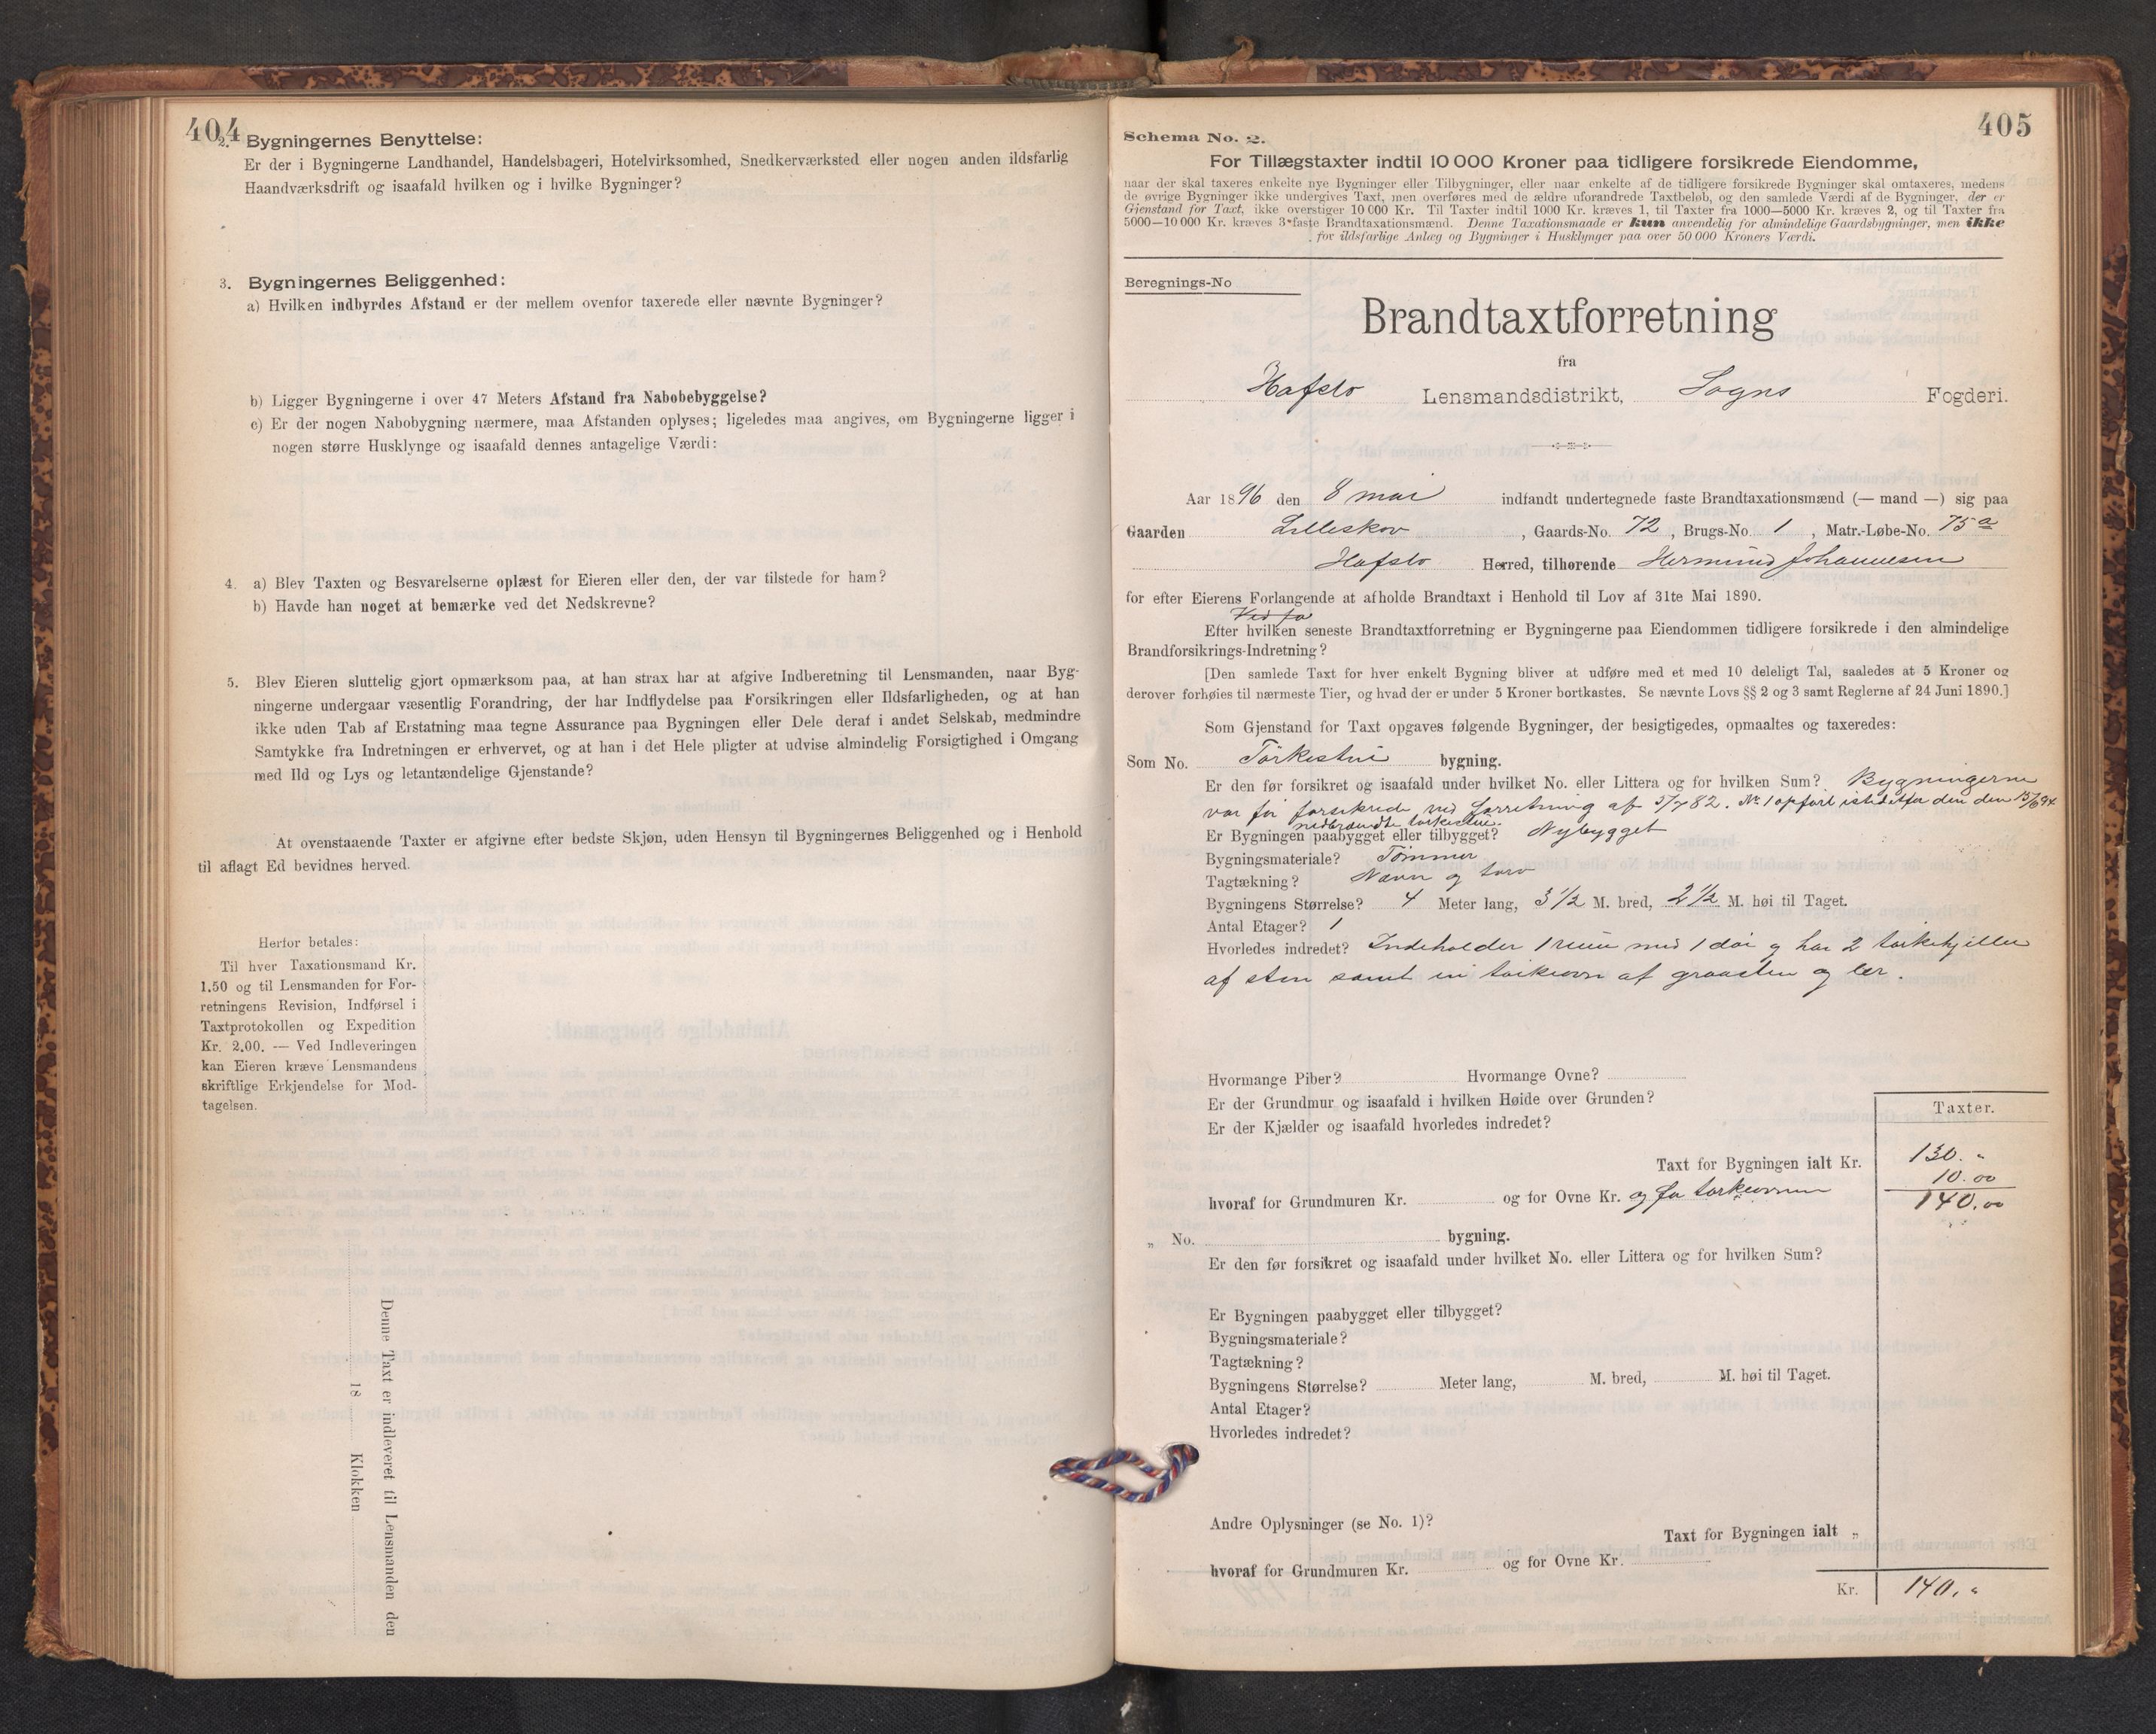 404
2. Bygningernes Benyttelse:
Er der i Bygningerne Landhandel, Handelsbageri, Hotelvirksomhed, Snedkerværksted eller nogen anden ildsfarlig
Haandværksdrift og isaafald hvilken og i hvilke Bygninger?
3. Bygningernes Beliggenhed:
a) Hvilken indbyrdes Afstand er der mellem ovenfor taxerede eller nævnte Bygninger?
b) Ligger Bygningerne i over 47 Meters Afstand fra Nabobebyggelse?
c) Er der nogen Nabobygning nærmere, maa Afstanden oplyses; ligeledes maa angives, om Bygningerne ligger i
nogen større Husklynge og isaafald dennes antagelige Værdi:
4. a) Blev Taxten og Besvarelserne oplæst for Eieren eller den, der var tilstede for ham?
b) Havde han noget at bemærke ved det Nedskrevne?
5. Blev Eieren sluttelig gjort opmærksom paa, at han strax har at afgive Indberetning til Lensmanden, naar Byg-
ningerne undergaar væsentlig Forandring, der har Indflydelse paa Forsikringen eller Ildsfarligheden, og at han
ikke uden Tab af Erstatning maa tegne Assurance paa Bygningen eller Dele deraf i andet Selskab, medmindre
Samtykke fra Indretningen er erhvervet, og at han i det Hele pligter at udvise almindelig Forsigtighed i Omgang
med Ild og Lys og letantændelige Gjenstande?
At ovenstaaende Taxter er afgivne efter bedste Skjøn, uden Hensyn til Bygningernes Beliggenhed og i Henhold
til aflagt Ed bevidnes herved.
Herfor betales:
Til hver Taxationsmand Kr.
1.50 og til Lensmanden for For-
retningens Revision, Indførsel i
Taxtprotokollen og Expedition
Kr. 2.00. — Ved Indleveringen
kan Eieren kræve Lensmandens
skriftlige Erkjendelse for Mod-
tagelsen.
Denne Taxt er indleveret til Lensmanden den
18 Klokken
405
Schema No. 2.
For Tillægstaxter indtil 10 000 Kroner paa tidligere forsikrede Eiendomme,
naar der skal taxeres enkelte nye Bygninger eller Tilbygninger, eller naar enkelte af de tidligere forsikrede Bygninger skal omtaxeres, medens
de øvrige Bygninger ikke undergives Taxt, men overføres med de ældre uforandrede Taxtbeløb, og den samlede Værdi af de Bygninger, der er
Gjenstand for Taxt, ikke overstiger 10 000 Kr. Til Taxter indtil 1000 Kr. kræves 1, til Taxter fra 1000—5000 Kr. kræves 2, og til Taxter fra
5000—10 000 Kr. kræves 3 faste Brandtaxationsmænd. Denne Taxationsmaade er kun anvendelig for almindelige Gaardsbygninger, men ikke
for ildsfarlige Anlæg og Bygninger i Husklynger paa over 50 000 Kroners Værdi.
Beregnings-No
Brandtaxtforretning
fra
Hafslo Lensmandsdistrikt, Sogns Fogderi.
Aar 1896 den 8 mai indfandt undertegnede faste Brandtaxationsmænd (— mand —) sig paa
Gaarden Lilleskov, Gaards-No. 72, Brugs-No. 1, Matr.-Løbe-No. 75a
Hafslo Herred, tilhørende Hermund Johannesen
for efter Eierens Forlangende at afholde Brandtaxt i Henhold til Lov af 31te Mai 1890.
Ved fo
Efter hvilken seneste Brandtaxtforretning er Bygningerne paa Eiendommen tidligere forsikrede i den almindelige
Brandforsikrings-Indretning?
[Den samlede Taxt for hver enkelt Bygning bliver at udføre med et med 10 deleligt Tal, saaledes at 5 Kroner og
derover forhøies til nærmeste Tier, og hvad der er under 5 Kroner bortkastes. Se nævnte Lovs §§ 2 og 3 samt Reglerne af 24 Juni 1890.]
Som Gjenstand for Taxt opgaves følgende Bygninger, der besigtigedes, opmaaltes og taxeredes:
Som No. Tørkestue bygning.
Er den før forsikret og isaafald under hvilket No. eller Littera og for hvilken Sum? Bygningerne
var før forsikrede ved forretning af 5/7 82. No 1 opført istedetfor den den 15/6 94
nedbrændte tørkestue.
Er Bygningen paabygget eller tilbygget? Nybygget
Bygningsmateriale? Tømmer
Tagtækning? Næver og torv
Bygningens Størrelse? 4 Meter lang, 3 1/2 M. bred, 2 1/2 M. høi til Taget.
Antal Etager? 1
Hvorledes indredet? Indeholder 1 rum med 1 dør og har 2 tørkehjeller
af sten samt en tørkeovn af graasten og ler.
Hvormange Piber? Hvormange Ovne?
Er der Grundmur og isaafald i hvilken Høide over Grunden?
Er der Kjælder og isaafald hvorledes indredet?
Taxter.
Taxt for Bygningen ialt Kr. 130. "
10.00
hvoraf for Grundmuren Kr. og for Ovne Kr. og for tørkeovnen 140.00
„ No. bygning.
Er den før forsikret og isaafald under hvilket No. eller Littera og for hvilken Sum?
Er Bygningen paabygget eller tilbygget?
Bygningsmateriale?
Tagtækning?
Bygningens Størrelse? Meter lang, M. bred, M. høi til Taget.
Antal Etager?
Hvorledes indredet?
Andre Oplysninger (se No. 1)?
Taxt for Bygningen ialt „
hvoraf for Grundmuren Kr. og for Ovne Kr.
Kr. 140. "